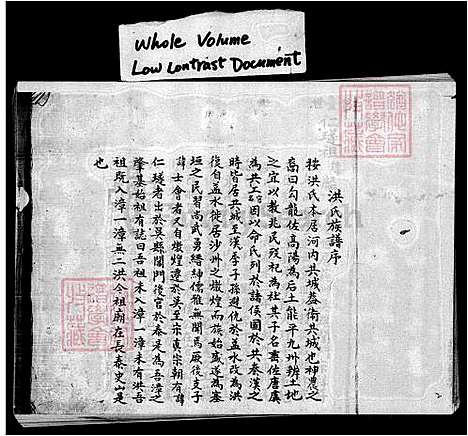 Whole Volume
Low Contrast Document
洪氏族譜序
按洪氏本居河內共城蓋衛共城也神農之
裔曰勾龍佐高陽為后土能平九州辨土地
之宜以教兆民歿祀為社其子名垂佐唐虞
為共工因以命氏列於諸侯國於共秦漢之
時皆居共城至漢季子孫避仇於益水改為洪
後自益水徙居沙州之燉煌而族始盛遂為塞
垣之民習尚武勇縉紳儒雅無聞焉厥後支子
諱士會者又自燉煌遷於吳至宋真宗朝有諱
仁璲者出於吳縣閶門後官於泰是為吾漳之
肇基始祖有誌曰吾祖未入漳一漳未有洪吾
祖既入漳一漳無二洪今祖廟在長泰史山是
也